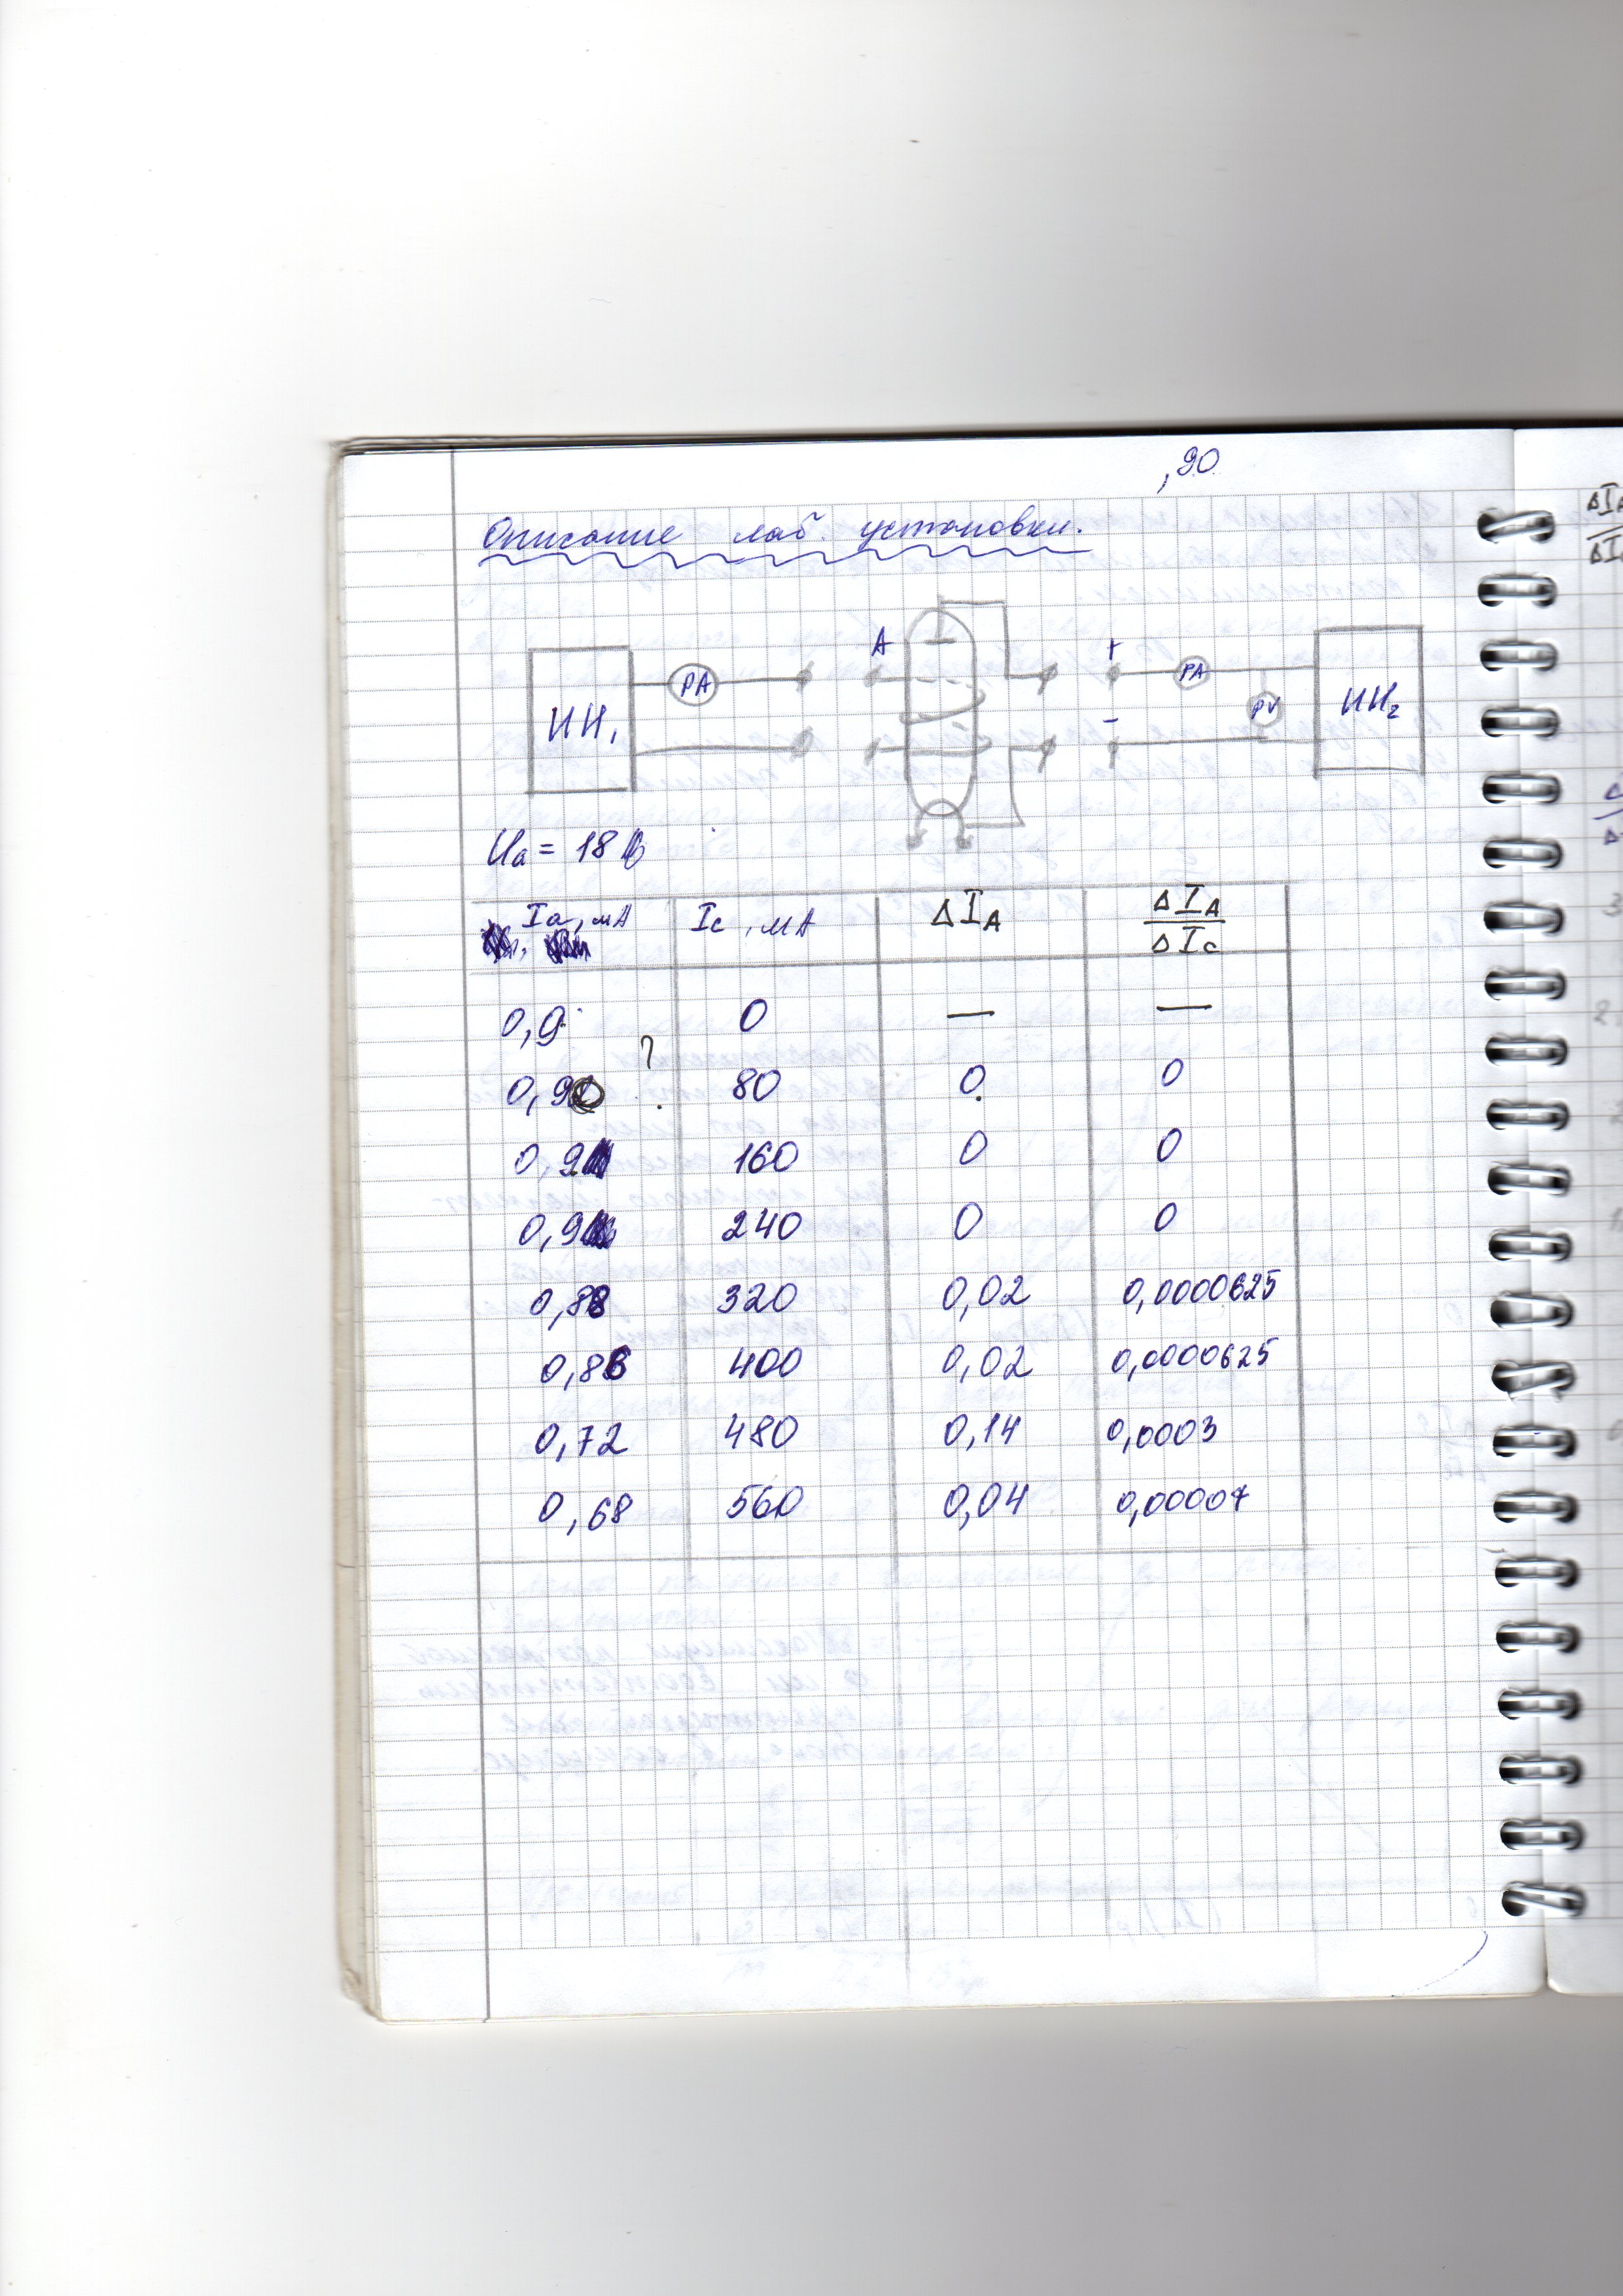 ,90
Описание лаб. установки.
A + -
ИН₁ PA PA PV ИН₂
Uа = 18 В
Iа, мА Iс, мА ΔIA ΔIA/ΔIc
0,9 0 — —
?
0,90 80 0 0
0,9 160 0 0
0,9 240 0 0
0,88 320 0,02 0,0000625
0,86 400 0,02 0,0000625
0,72 480 0,14 0,0003
0,68 560 0,04 0,00007
ΔIA
ΔI